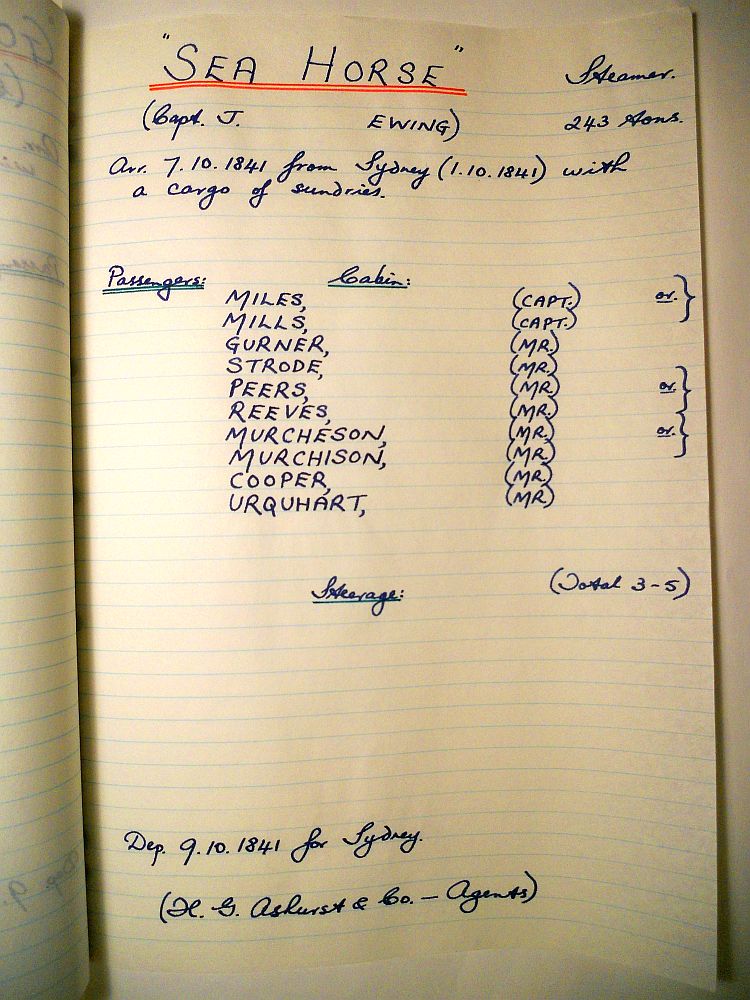 "SEA HORSE" Steamer.
(Capt. J. EWING) 243 tons.
Arr. 7.10.1841 from Sydney (1.10.1841) with
a cargo of sundries.
Passengers: Cabin:
MILES, (CAPT.) or. }
MILLS, (CAPT.)
GURNER, (MR.)
STRODE, (MR.)
PEERS, (MR.) or. }
REEVES, (MR.)
MURCHESON, (MR.) or. }
MURCHISON, (MR.)
COOPER, (MR.)
URQUHART, (MR.)
Steerage: (Total 3-5)
Dep. 9.10.1841 for Sydney.
(H. G. Ashurst & Co. — Agents)